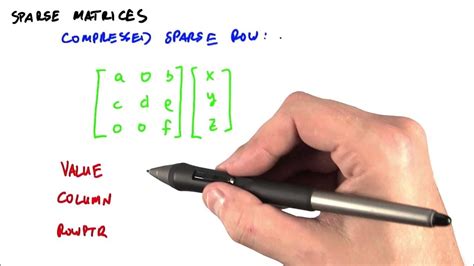 SPARSE MATRICES
COMPRESSED SPARSE ROW:
a 0 b x
c d e y
0 0 f z
VALUE
COLUMN
ROWPTR